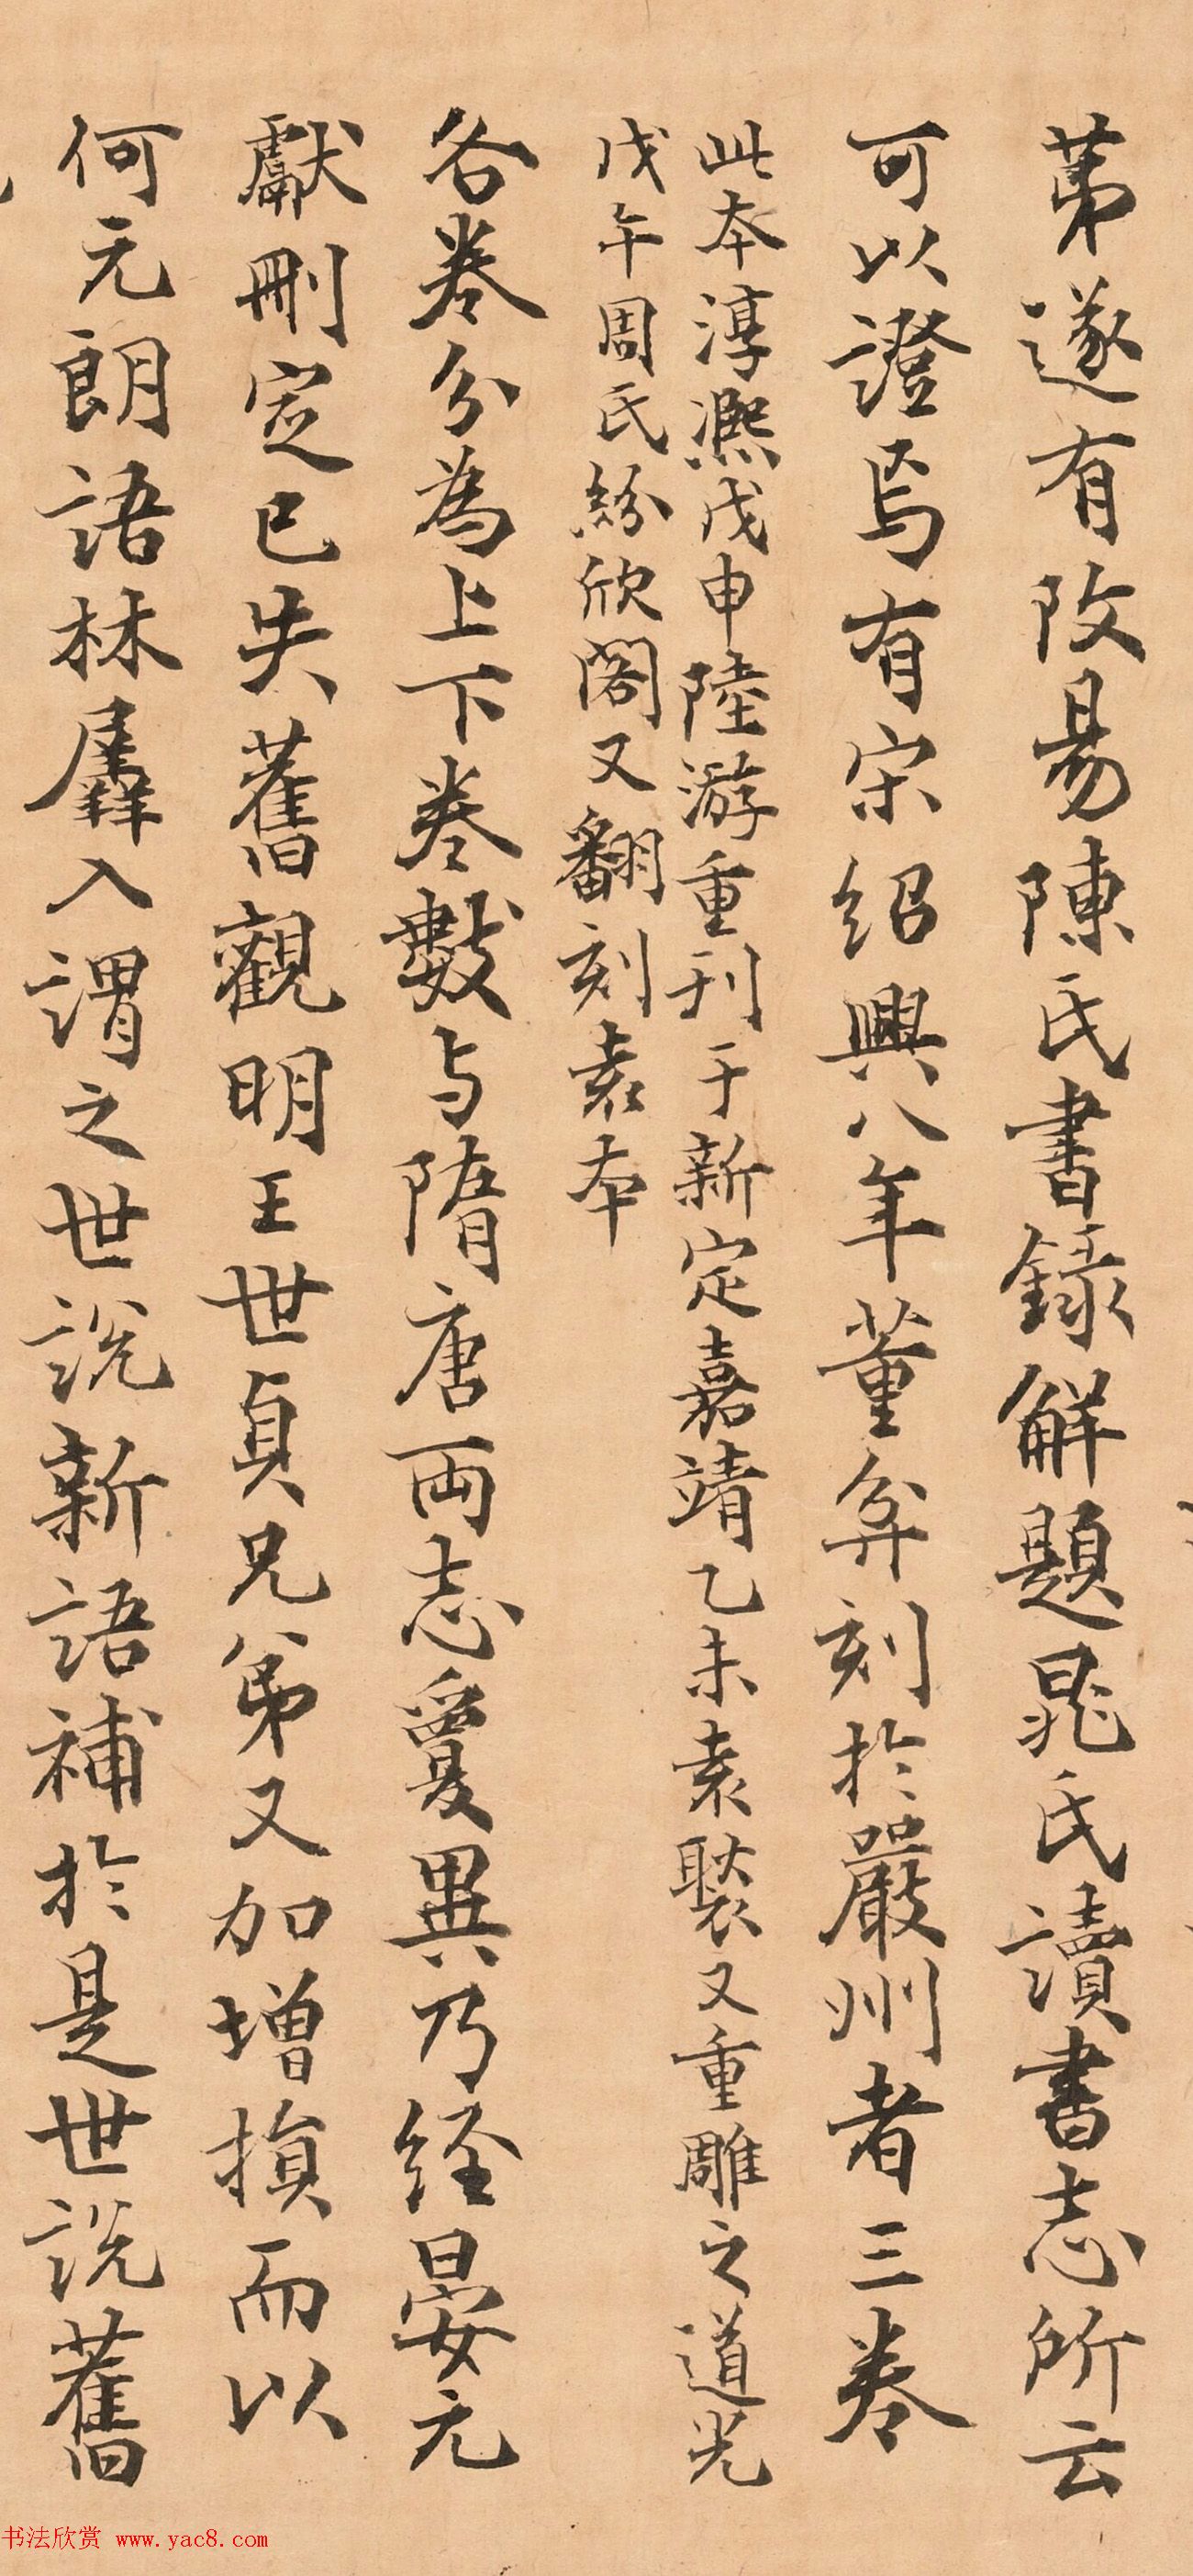 苐遂有攺易陳氏書録解題晁氏讀書志所云
可以證焉有宋紹興八年董弅刻於嚴州者三卷
此本淳熙戊申陸游重刊于新定嘉靖乙未袁褧又重雕之道光
戊午周氏紛欣閣又翻刻袁本
各卷分為上下卷數与隋唐両志夐異乃経晏元
獻刪定已失舊觀明王世貞兄弟又加增損而以
何元朗語林羼入謂之世說新語補於是世說舊
书法欣赏 www.yac8.com